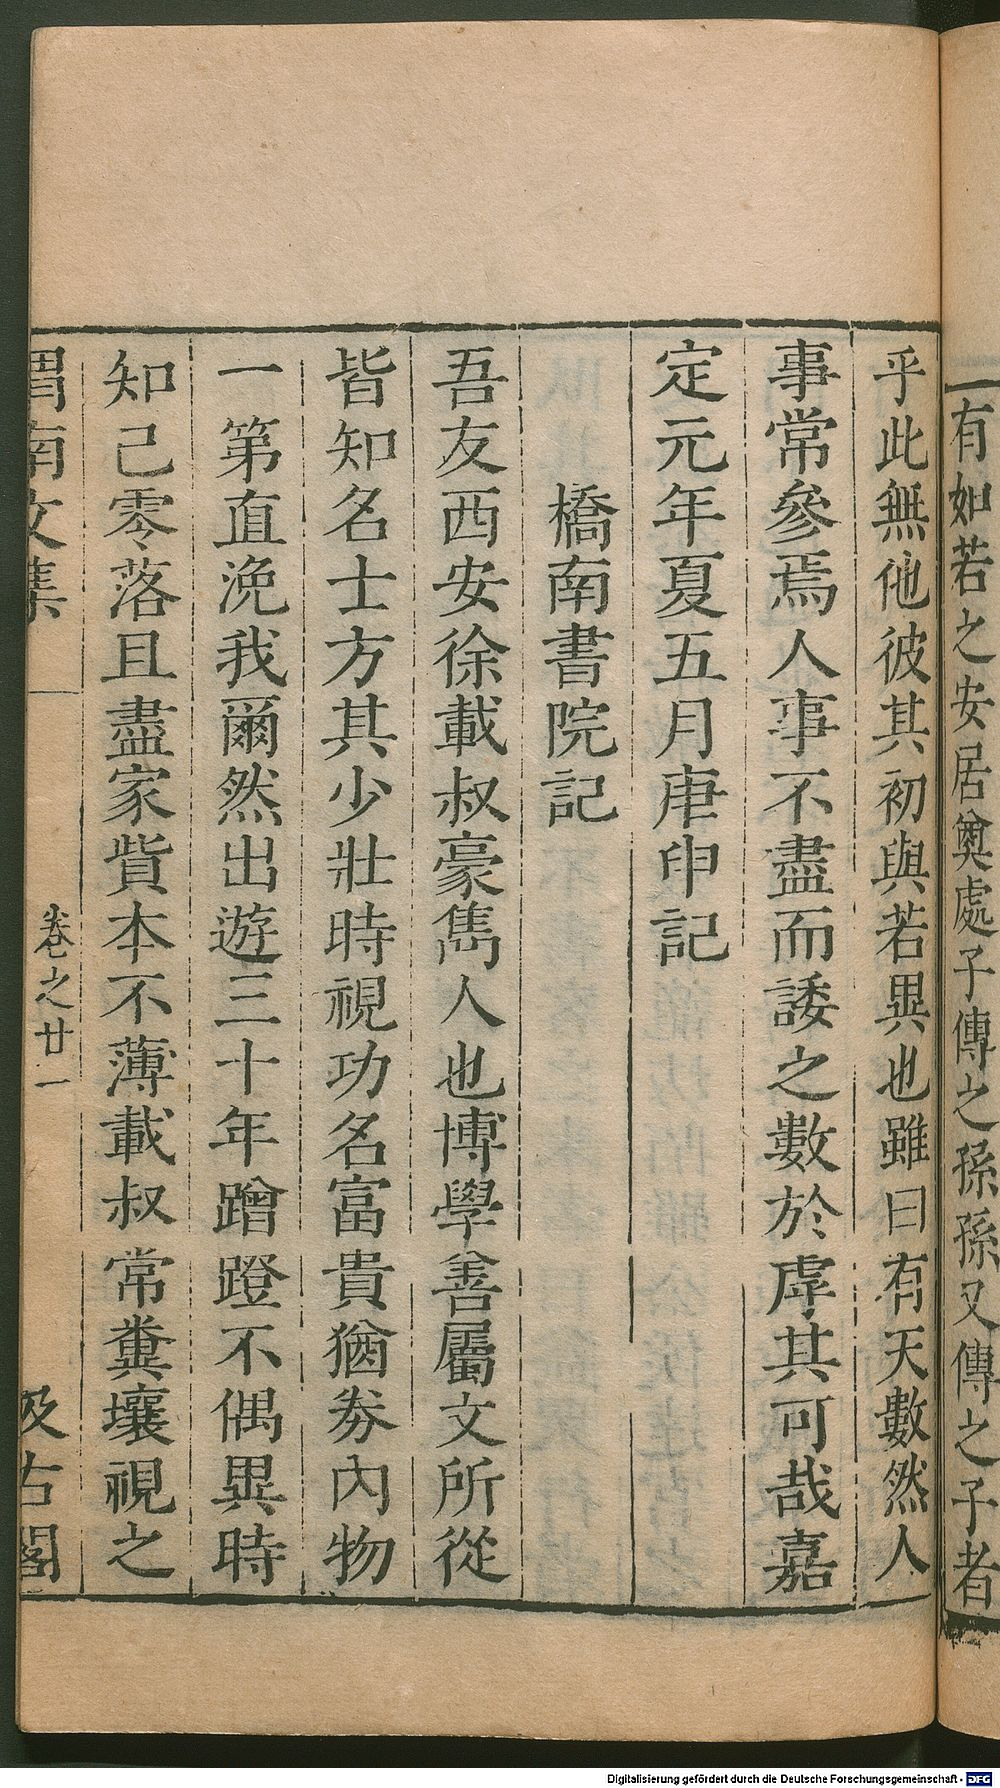 有如若之安居奠處子傳之孫孫又傳之子者
乎此無他彼其初與若異也雖曰有天數然人
事常參焉人事不盡而諉之數於虖其可哉嘉
定元年夏五月庚申記
橋南書院記
吾友西安徐載叔豪雋人也博學善屬文所從
皆知名士方其少壯時視功名富貴猶券內物
一第直浼我爾然出遊三十年蹭蹬不偶異時
知己零落且盡家貲本不薄載叔常糞壤視之
渭南文集
卷之廿一
汲古閣
Digitalisierung gefördert durch die Deutsche Forschungsgemeinschaft - DFG